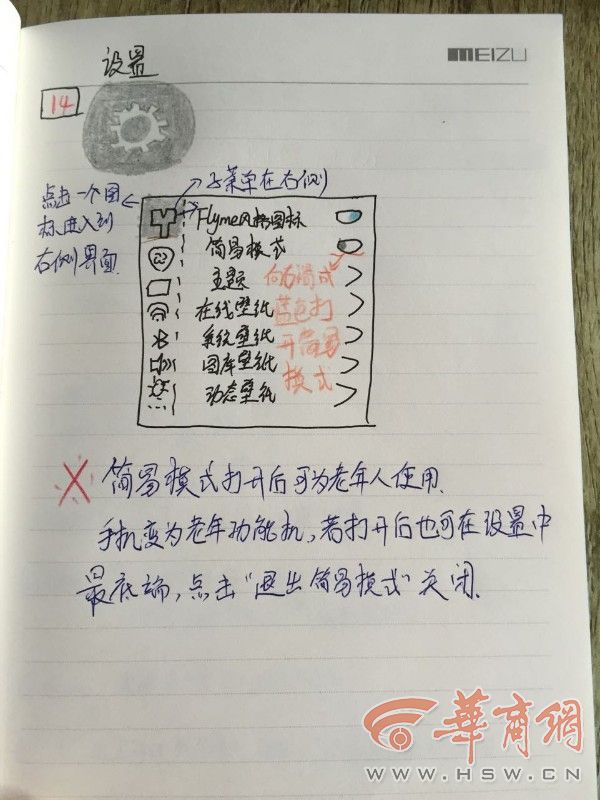 设置
MEIZU
14
点击一个图
标进入到
右侧界面
子菜单在右侧
Flyme风格图标
简易模式
主题
在线壁纸
系统壁纸
图库壁纸
动态壁纸
向右滑成
蓝色打
开简易
模式
简易模式打开后可为老年人使用.
手机变为老年功能机,若打开后也可在设置中
最底端,点击"退出简易模式"关闭.
華商網
WWW.HSW.CN